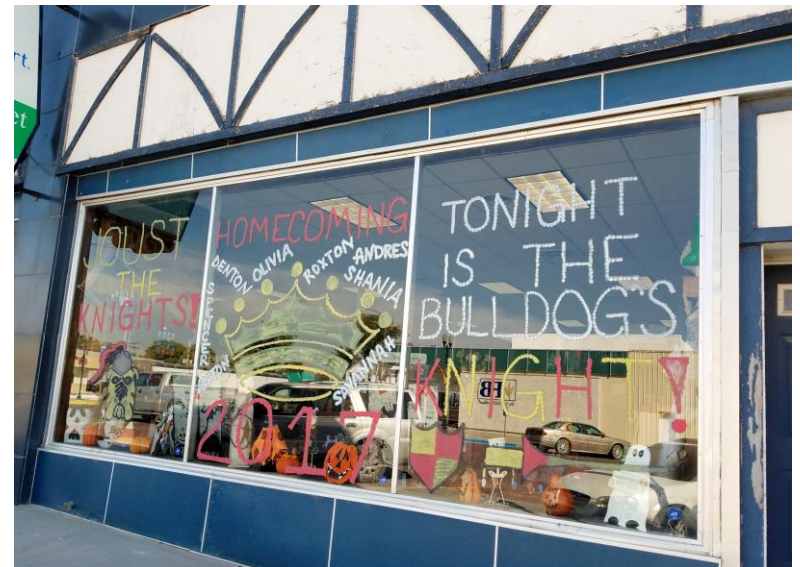 rt.
et
JOUST
THE
KNIGHTS!
HOMECOMING
DENTON
OLIVIA
ROXTON
ANDRES
SHANIA
SPENCER
SAVANNAH
2017
TONIGHT
IS THE
BULLDOG'S
KNIGHT!